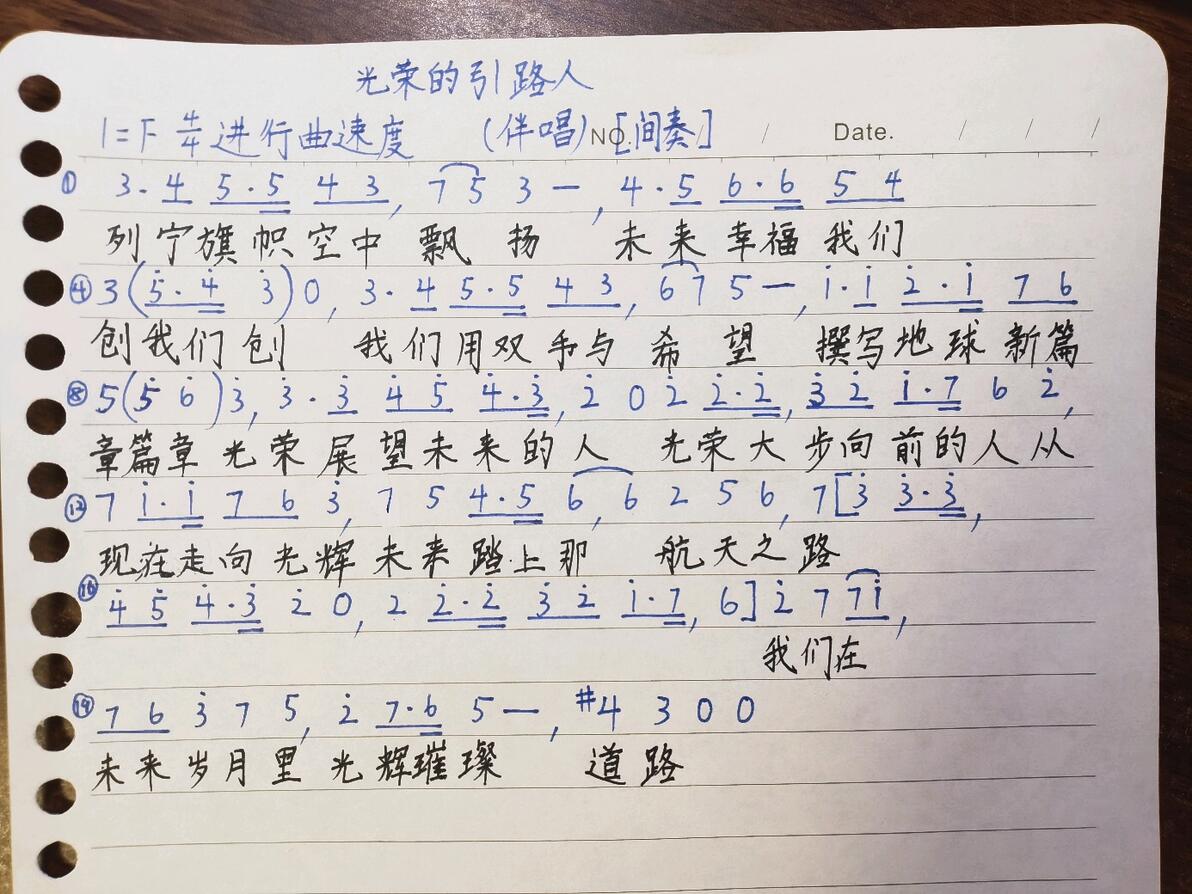 光荣的引路人
1=F 4/4 进行曲速度 (伴唱) NO. [间奏] / / Date. / / /
① 3. 4 5.5 4 3, 7 5 3 —, 4.5 6.6 5 4
列宁旗帜空中 飘 扬 未来幸福 我们
④ 3(5̇.4̇ 3̇)0, 3.4 5.5 4 3, 6 7 5 —, i.i 2̇.i 7 6
创我们创 我们用双手与希望 撰写地球新篇
⑧ 5(5̇ 6̇)3̇, 3̇.3̇ 4̇ 5̇ 4̇.3̇, 2̇ 0 2̇ 2̇.2̇, 3̇ 2̇ i.7 6 2̇,
章篇章光荣展望未来的人 光荣大步向前的人从
⑫ 7 i.i 7 6 3̇, 7 5 4.5 6, 6 2 5 6, 7[3̇ 3̇.3̇,
现在走向光辉未来踏上那 航天之路
⑯ 4̇ 5̇ 4̇.3̇ 2̇ 0, 2 2̇.2̇ 3̇ 2̇ i.7, 6] 2̇ 7 7i,
我们在
⑲ 7 6 3̇ 7 5, 2̇ 7.6 5 —, #4 3 0 0
未来岁月里光辉璀璨 道路